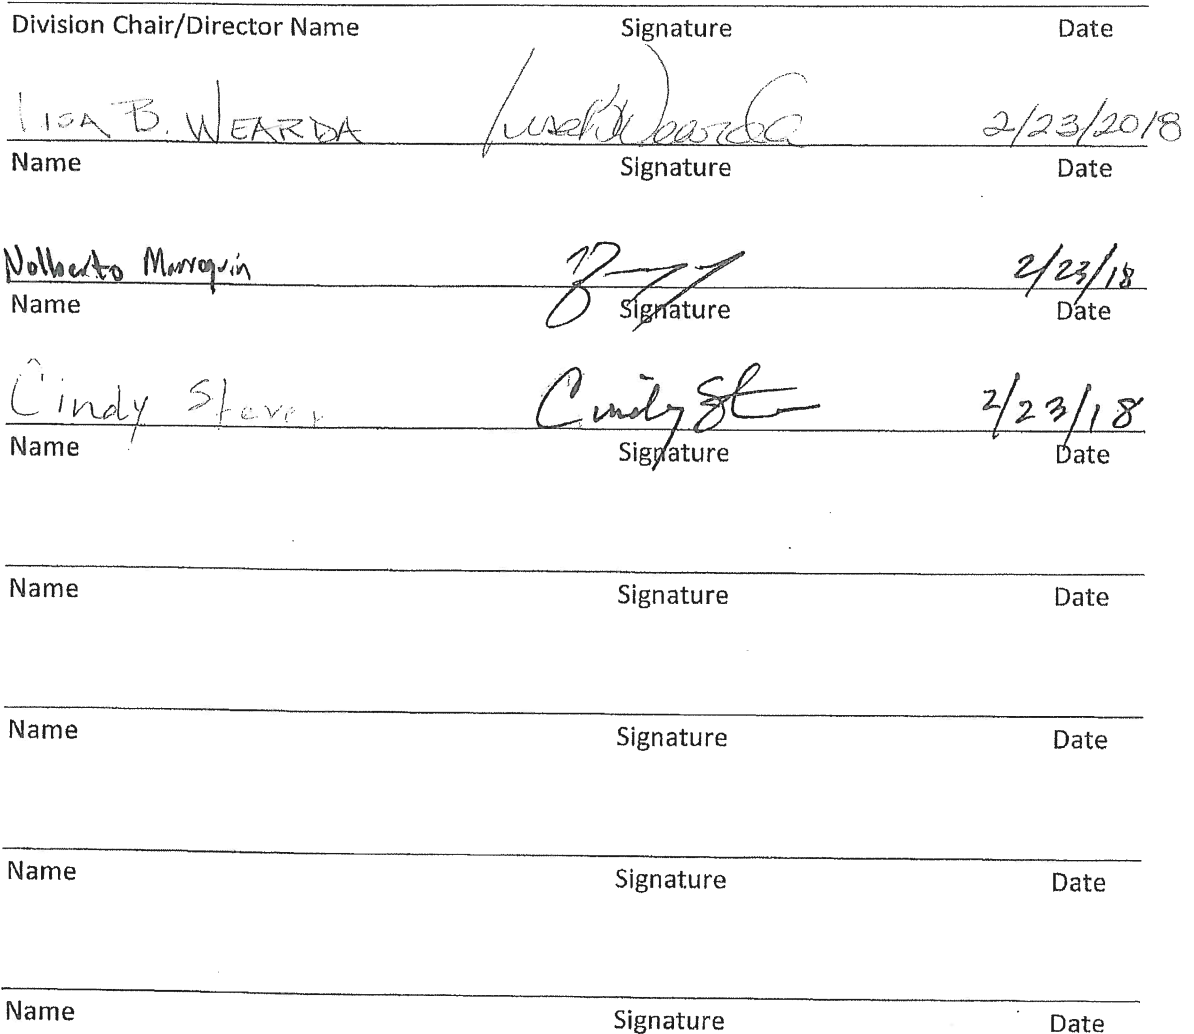 Division Chair/Director Name Signature Date
LISA B. WEARDA Lisa B Wearda 2/23/2018
Name Signature Date
Nolberto Marroquin 2/23/18
Name Signature Date
Cindy Cindy 2/23/18
Name Signature Date
Name Signature Date
Name Signature Date
Name Signature Date
Name Signature Date